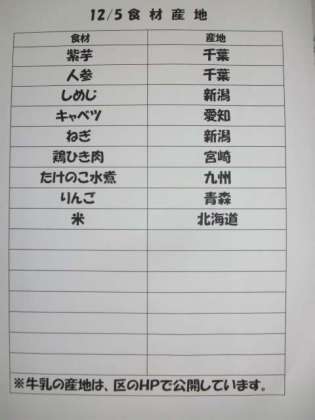 12/5食材産地
食材 産地
紫芋 千葉
人参 千葉
しめじ 新潟
キャベツ 愛知
ねぎ 新潟
鶏ひき肉 宮崎
たけのこ水煮 九州
りんご 青森
米 北海道
※牛乳の産地は、区のHPで公開しています。